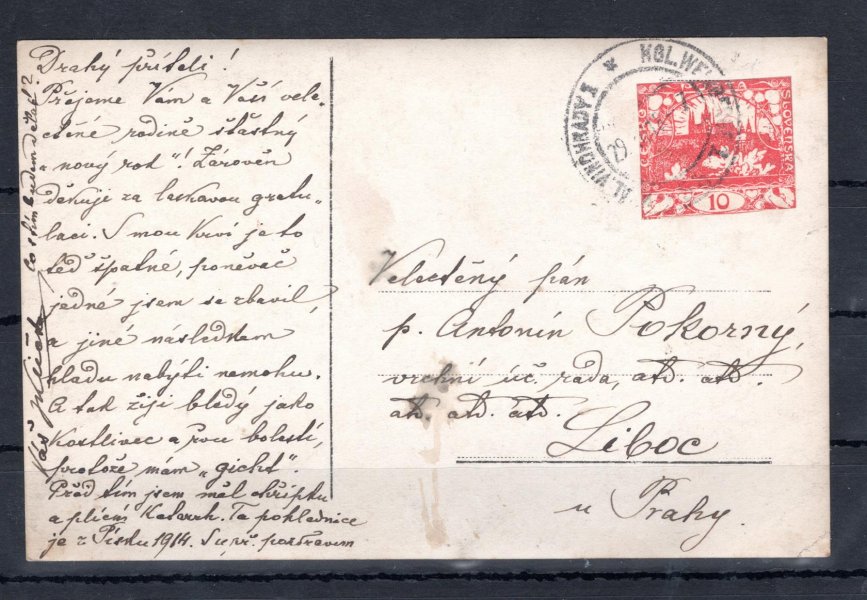 Drahý příteli!
Přejeme Vám a Vaší vele-
ctěné rodině šťastný
„nový rok"! Zároveň
děkuji za laskavou gratu-
laci. S mou krví je to
teď špatné, poněvač
jedné jsem se zbavil,
a jiné následkem
hladu nabýti nemohu.
A tak žiji bledý jako
kostlivec a řvu bolestí,
protože mám „gicht".
Před tím jsem měl chřipku
a plicní Katarrh. Ta pohlednice
je z Písku 1914. S up. pozdravem
Váš
co s tím budem dělat?
KÖL. WE
AL. VINOHRADY 1
29
ČESKO SLOVENSKÁ
10
Velectěný pán
p. Antonín Pokorný,
vrchní úč. rada, atd. atd.
atd. atd. atd.
Liboc
u Prahy.